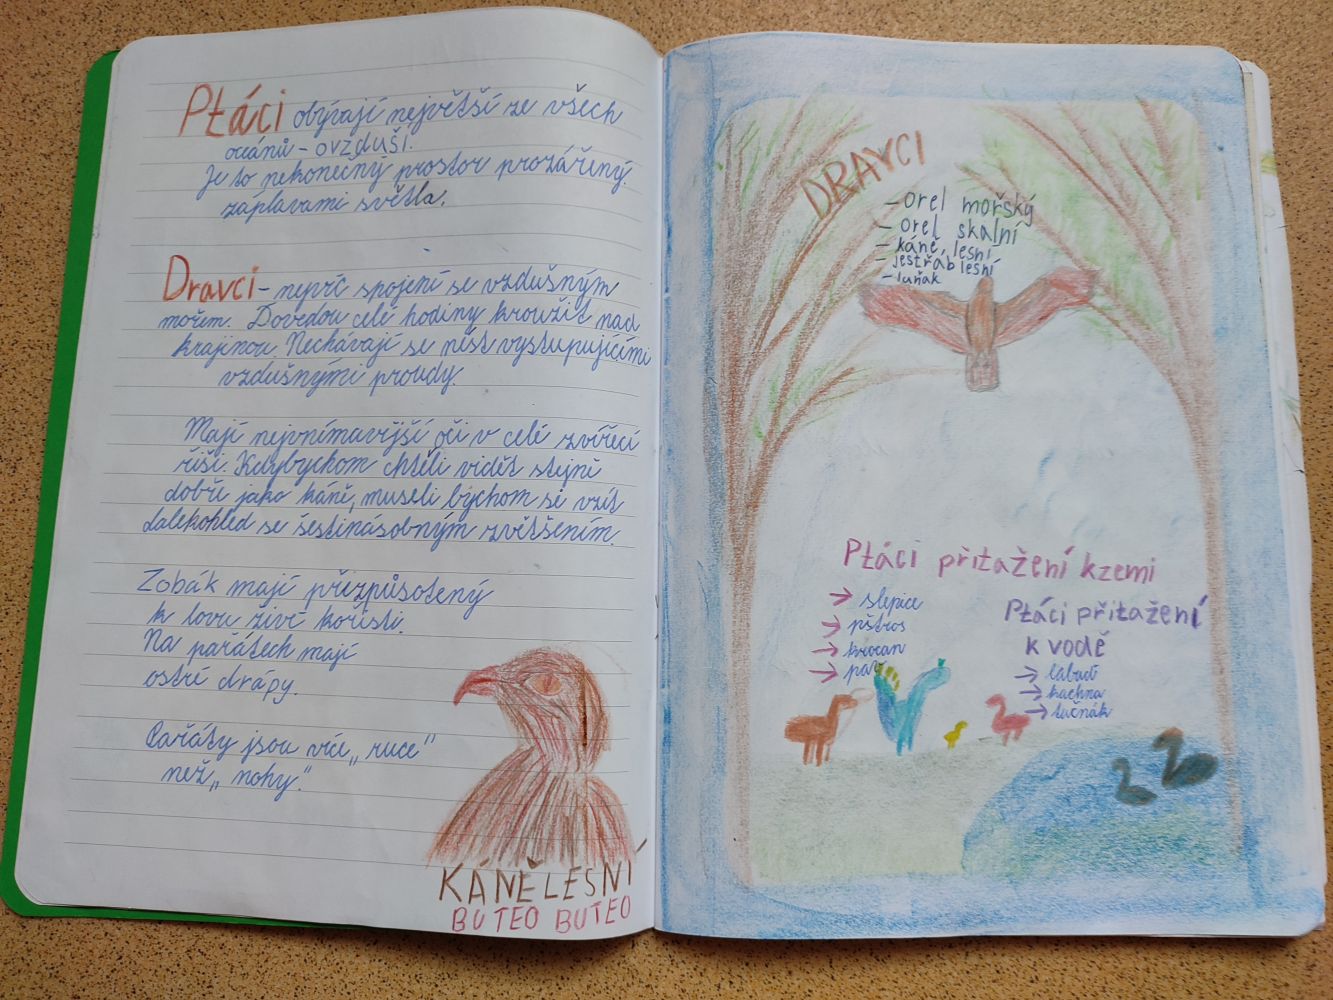 Ptáci obývají největší ze všech
oceánů - ovzduší.
Je to nekonečný prostor prozářený
záplavami světla.
Dravci - nejvíc spojení se vzdušným
mořem. Dovedou celé hodiny kroužit nad
krajinou. Nechávají se nést vystupujícími
vzdušnými proudy.
Mají nejvnímavější oči v celé zvířecí
říši. Kdybychom chtěli vidět stejně
dobře jako káně, museli bychom si vzít
dalekohled se šestinásobným zvětšením.
Zobák mají přizpůsobený
k lovu živé kořisti.
Na pařátech mají
ostré drápy.
Pařáty jsou více „ruce"
než „nohy."
KÁNĚ LESNÍ
BUTEO BUTEO
DRAVCI
- orel mořský
- orel skalní
- káně lesní
- jestřáb lesní
- luňák
Ptáci přitažení k zemi
→ slepice
→ pštros
→ krocan
→ páv
Ptáci přitažení
k vodě
→ labuť
→ kachna
→ tučňák